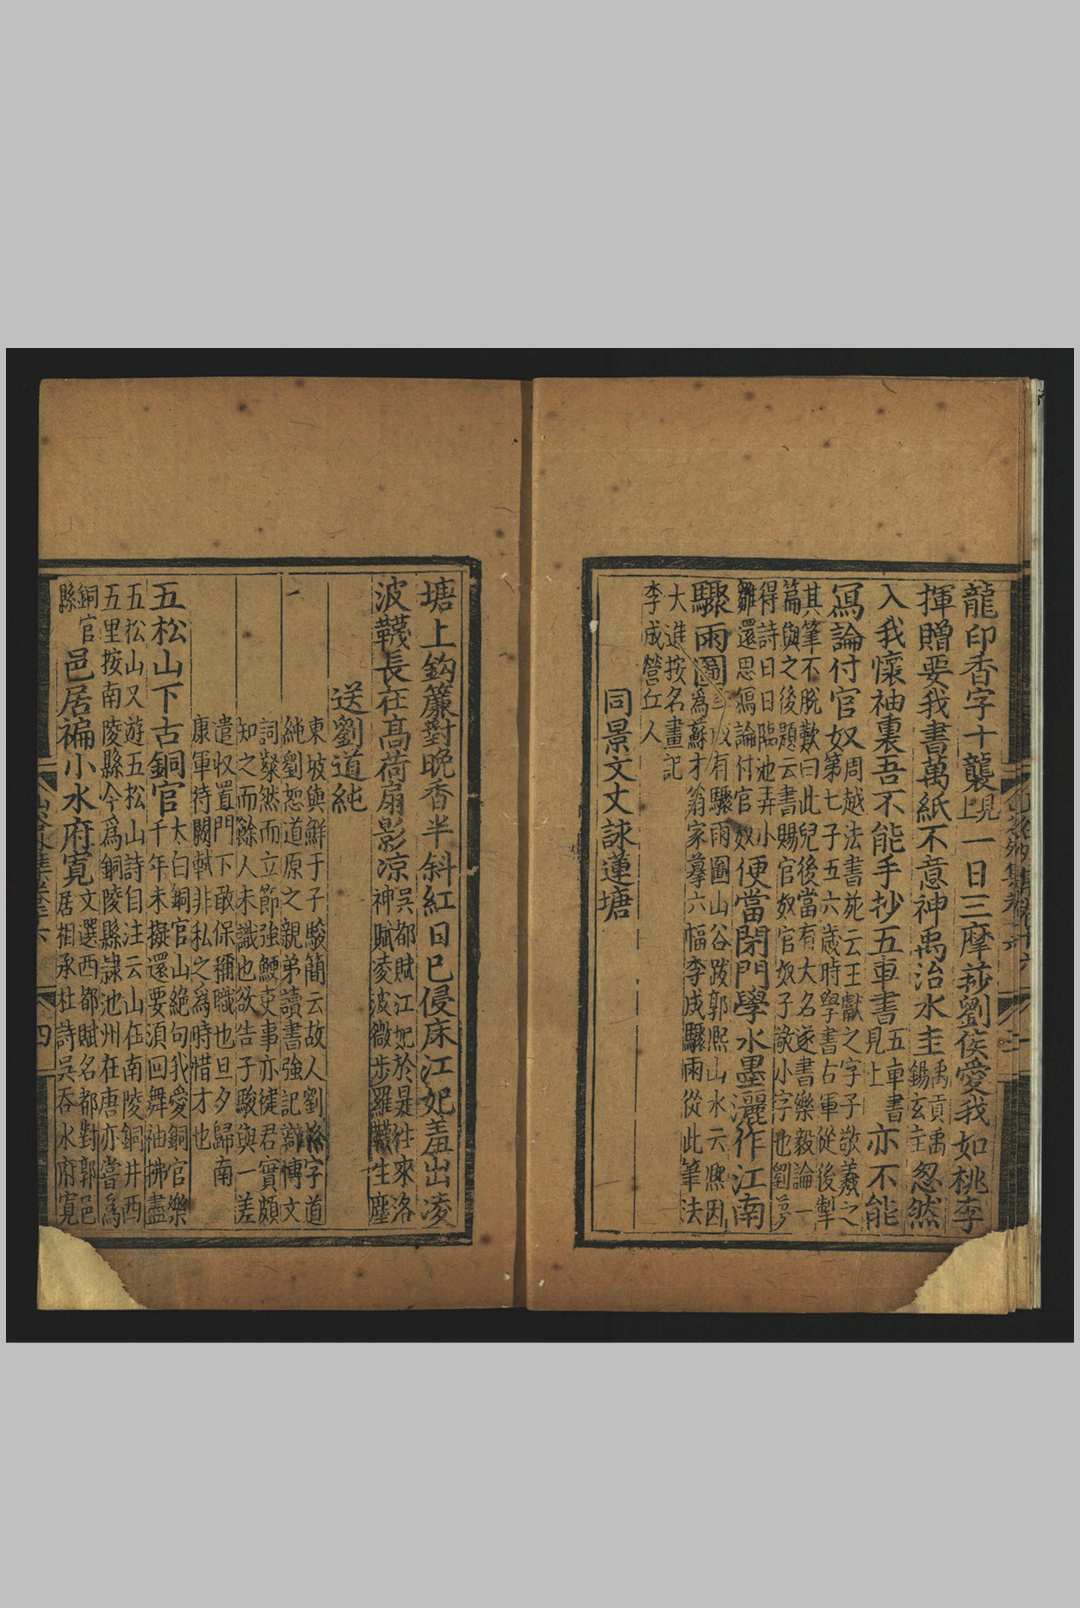 龍印香字十襲見上一日三摩挲劉侯愛我如桃李
揮贈要我書萬紙不意神禹治水圭禹貢禹錫玄圭忽然
入我懷袖裏吾不能手抄五車書五車書見上亦不能
寫論付官奴周越法書苑云王獻之字子敬羲之第七子五六歲時學書右軍從後掣
其筆不脫歎曰此兒後當有大名遂書樂毅論一篇與之後題云書賜官奴官奴子敬小字也劉夢
得詩曰日臨池弄小雛還思寫論付官奴便當閉門學水墨灑作江南
驟雨圖為蘇才翁家摹六幅李成驟雨從此筆法
有驟雨圖山谷跋郭熙山水云熙因
大進按名畫記
李成營丘人
同景文丈詠蓮塘
塘上鈎簾對晚香半斜紅日已侵床江妃羞出凌
波韈長在髙荷扇影凉吳都賦江妃於是往來洛神賦凌波微步羅韈生塵
送劉道純
東坡與鮮于子駿簡云故人劉恕字道
純劉恕道原之親弟讀書強記辭博文
詞粲然而立節強鯁吏事亦健君實頗
知之而餘人未識也欲告子駿與一差
遣收置門下敢保稱職也旦夕歸南
康軍待闕軾非私之為時惜才也
五松山下古銅官太白銅官山絶句我愛銅官樂千年未擬還要須回舞袖拂盡
五松山又遊五松山詩自注云山在南陵銅井西五里按南陵縣今為銅陵縣隷池州在唐亦嘗為
銅官縣邑居褊小水府寛文選西都賦名都對郭邑居相承杜詩吳吞水府寛
四